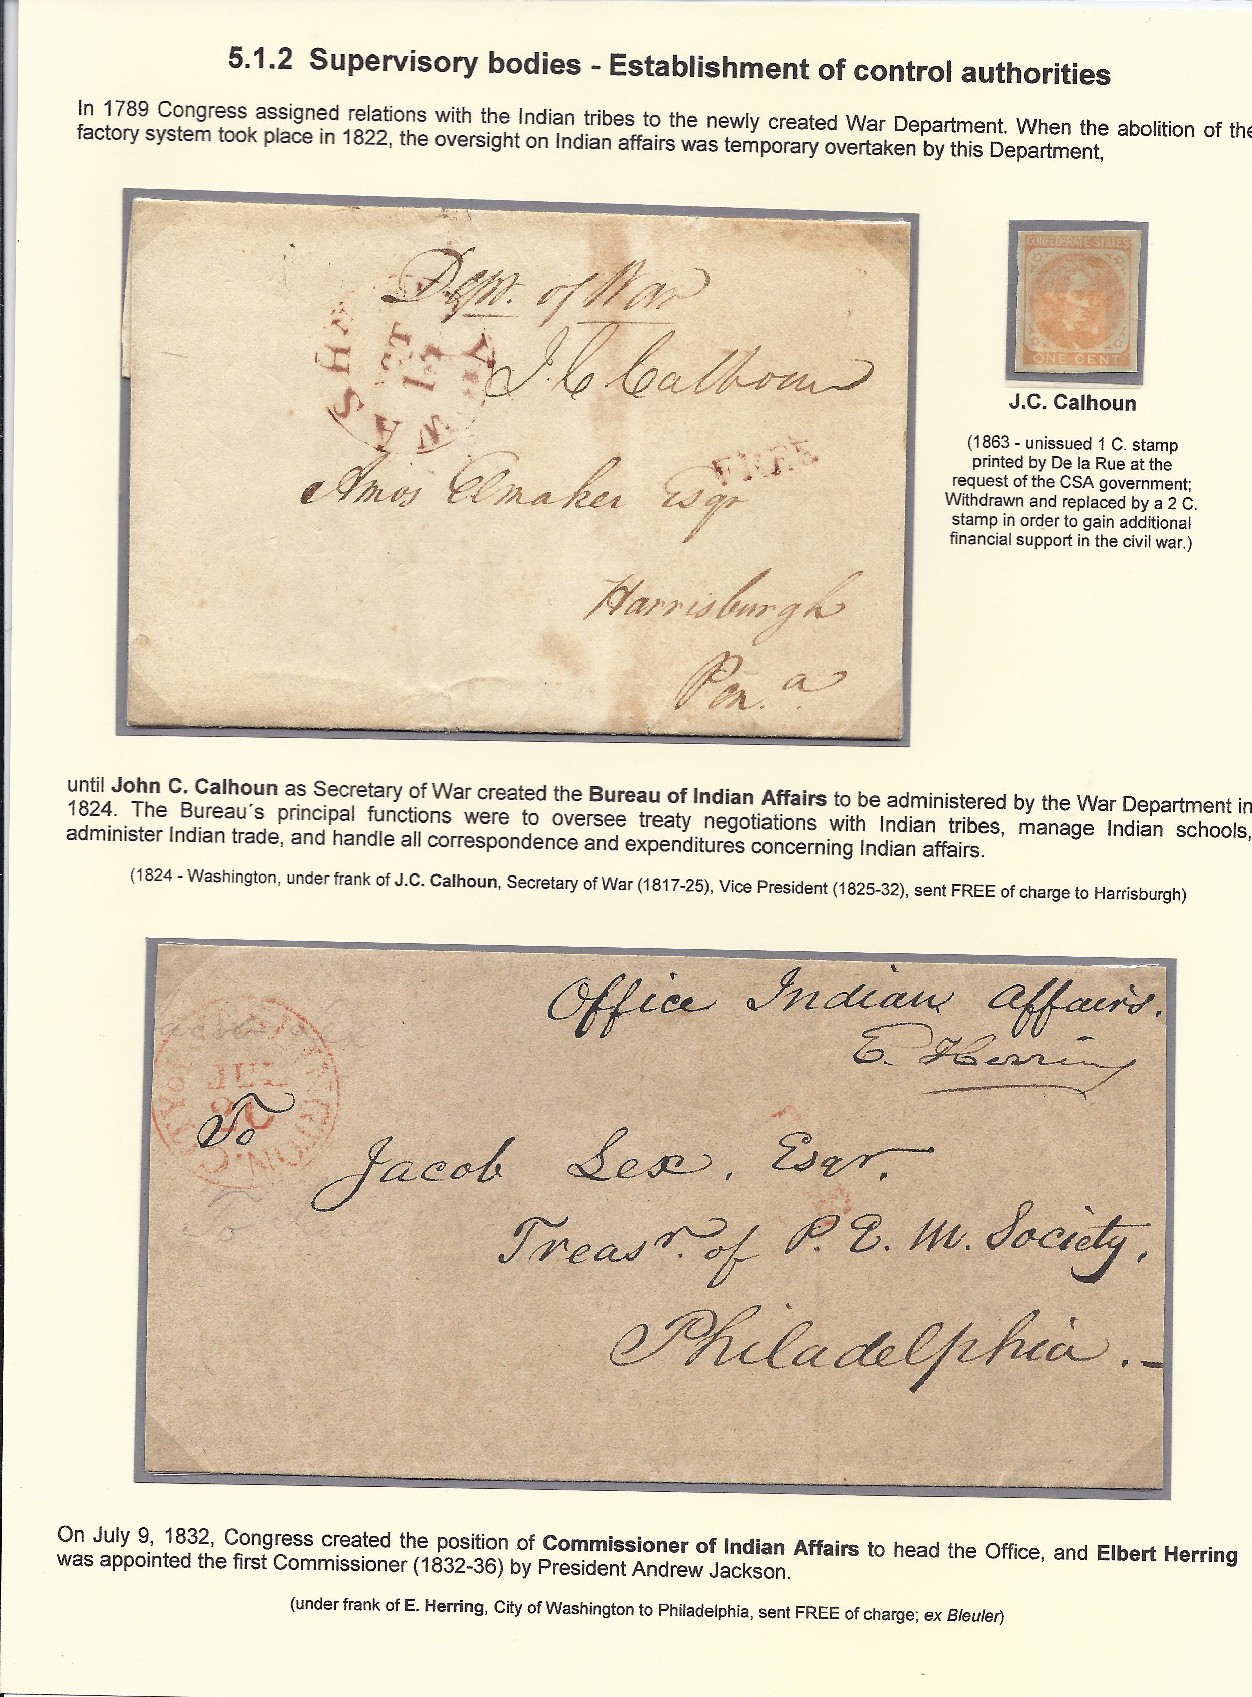 5.1.2 Supervisory bodies - Establishment of control authorities
In 1789 Congress assigned relations with the Indian tribes to the newly created War Department. When the abolition of the
factory system took place in 1822, the oversight on Indian affairs was temporary overtaken by this Department,
Dept. of War
J. C Calhoun
WASH
FREE
Amos Elmaker Esqr
Harrisburgh
Pen.a.
CONFEDERATE STATES
ONE CENT
J.C. Calhoun
(1863 - unissued 1 C. stamp
printed by De la Rue at the
request of the CSA government;
Withdrawn and replaced by a 2 C.
stamp in order to gain additional
financial support in the civil war.)
until John C. Calhoun as Secretary of War created the Bureau of Indian Affairs to be administered by the War Department in
1824. The Bureau´s principal functions were to oversee treaty negotiations with Indian tribes, manage Indian schools,
administer Indian trade, and handle all correspondence and expenditures concerning Indian affairs.
(1824 - Washington, under frank of J.C. Calhoun, Secretary of War (1817-25), Vice President (1825-32), sent FREE of charge to Harrisburgh)
Office Indian Affairs.
E. Herring
To
Jacob Lex, Esqr.
Treasr. of P. E. M. Society,
Philadelphia.-
On July 9, 1832, Congress created the position of Commissioner of Indian Affairs to head the Office, and Elbert Herring
was appointed the first Commissioner (1832-36) by President Andrew Jackson.
(under frank of E. Herring, City of Washington to Philadelphia, sent FREE of charge; ex Bleuler)